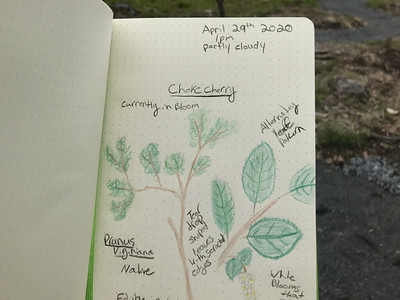 April 29th 2020
1pm
partly cloudy
Choke Cherry
currently in Bloom
Alternating
leaf
Pattern
Tear
drop
shaped
leaves
with serrated
edges
Prunus
Virginiana
Native
White
Blooms that